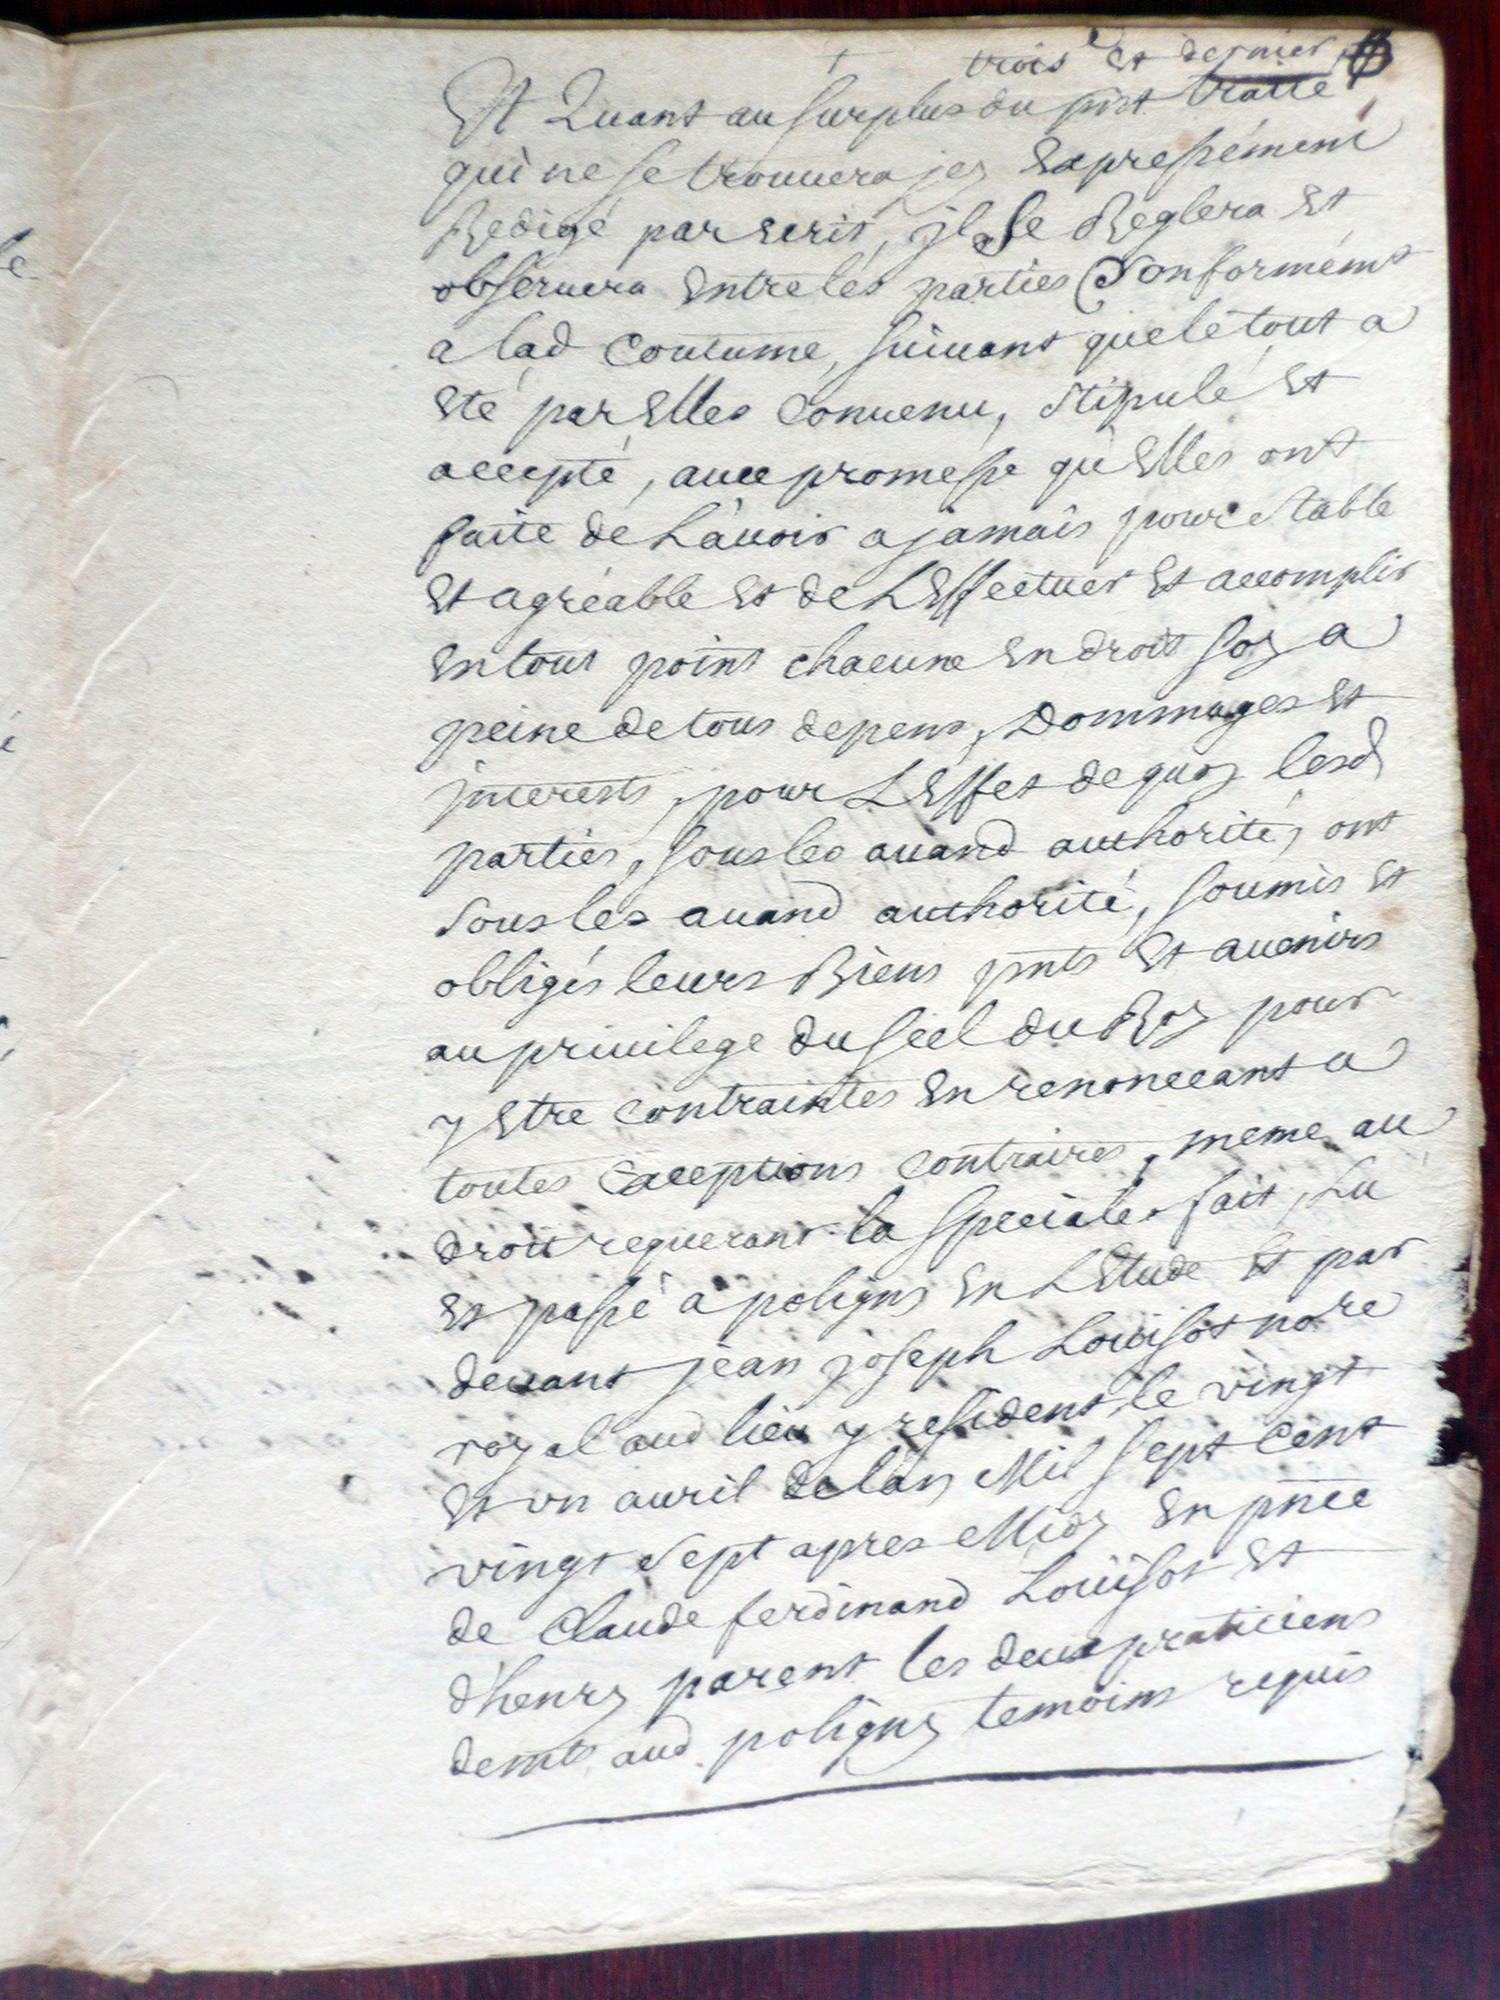 trois e et dernier
Et Quant au surplus du pnt traité
qui ne se trouuera jcy expressément
Redigé par écrit, jl se Reglera et
obseruera entre les parties Conformémt
a lad Coutume, suiuant que le tout a
eté par Elles Conuenu, stipulé et
accepté, auec promesse qu'Elles ont
faite de L'auoir a jamais pour stable
et agréable et de L'Effectuer et accomplir
en tout point chacune en droit soy a
peine de tous depens, Dommages et
jnterests, pour L'Effet de quoy lesd
parties, sous les auand authorité, ont
sous les auand authorité, soumis et
obligés leurs Biens pnts et auenirs
au priuilege du scel du Roy pour
y Etre contraintes en renonceant a
toutes Exceptions contraires, meme au
droit requerant la speciale. fait, Lu
et passé a poligny en L'Etude et par
deuant jean joseph Louisot nore
royal aud lieu y residant, le vingt
et vn auril de l'an Mil sept cent
vingt sept apres Midy en pnce
de Claude ferdinand Louisot et
d'henry parent les deux praticiens
demts aud poligny temoins requis